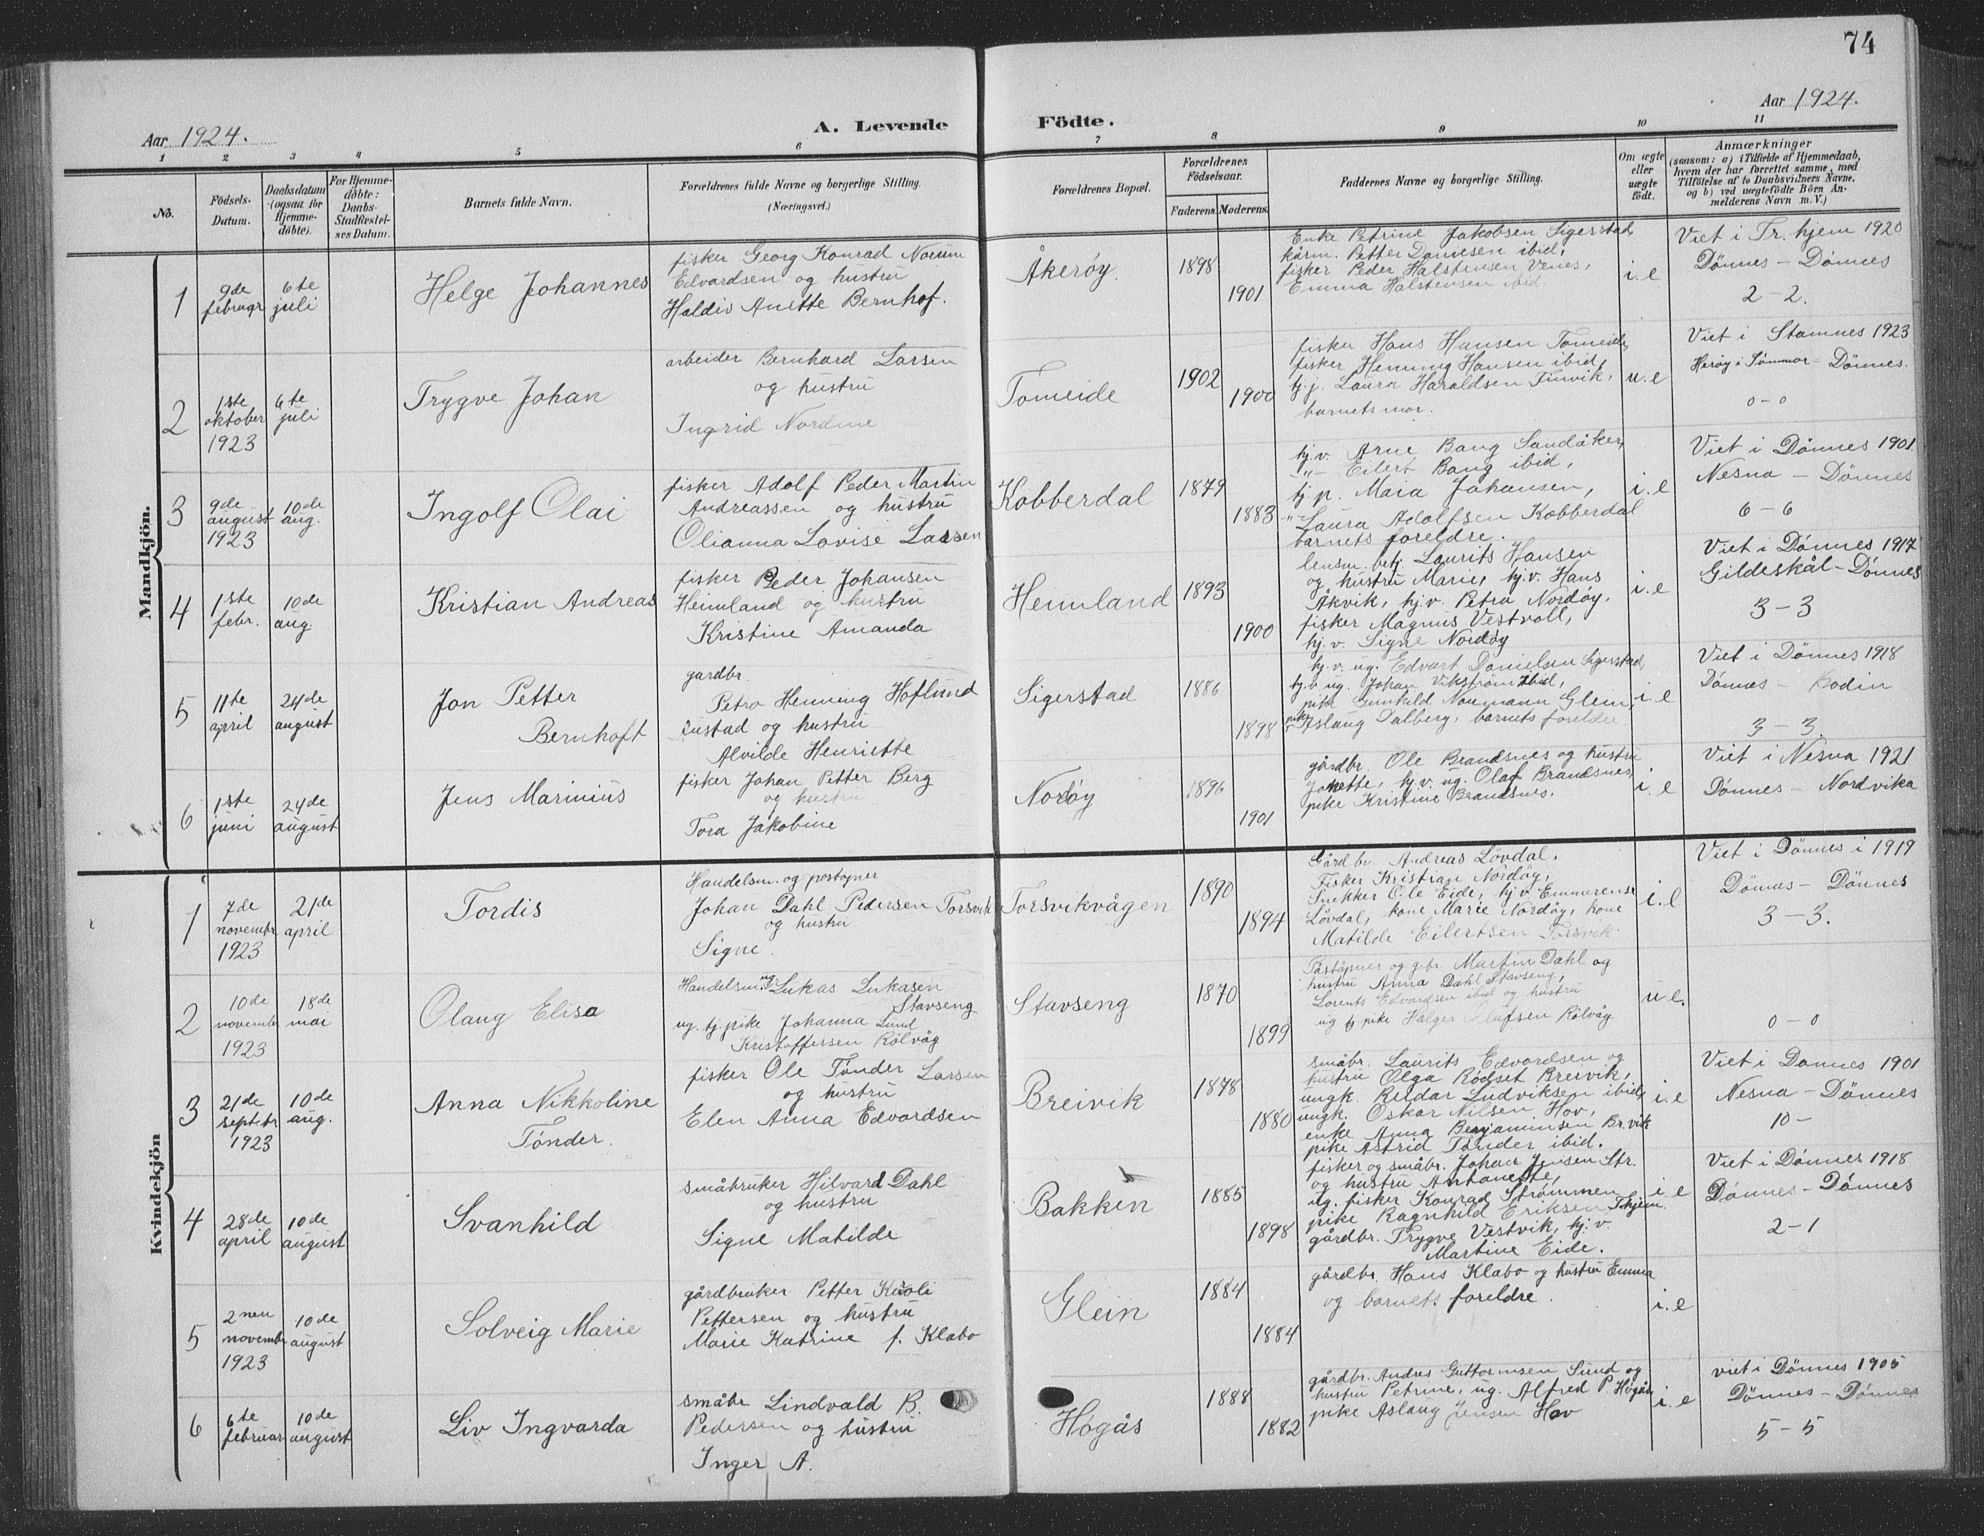 74
Aar 1924.
A. Levende
Födte.
Aar 1924.
1 2 3 4 5 6 7 8 9 10 11
No.
Födsels-
Datum.
Daabsdatum
(ogsaa for
Hjemme-
döbte).
For Hjemme-
döbte:
Daabs-
Stadfæstel-
ses Datum.
Barnets fulde Navn.
Forældrenes fulde Navne og borgerlige Stilling.
(Næringsvei.)
Forældrenes Bopæl.
Forældrenes
Födselsaar.
Faderens.
Moderens.
Faddernes Navne og borgerlige Stilling.
Om ægte
eller
uægte
födt.
Anmærkninger
(saasom: a) i Tilfælde af Hjemmedaab,
hvem der har forrettet samme, med
Tilföielse af to Daabsvidners Navne,
og b) ved uægtefödte Börn An-
melderens Navn m. V.)
Mandkjön.
1
9de
februar
6te
juli
Helge Johannes
fisker Georg Konrad Norum
Edvardsen og hustru
Haldis Anette Bernhof.
Åkerøy.
1898
1901
Enke Petrine Jakobsen Sigerstad
kårm. Petter Danielsen ibid,
fisker Peder Halstensen Venes,
Emma Halstensen ibid.
i.e
Viet i Tr.hjem 1920
Dønnes - Dønnes
2-2.
2
1ste
oktober
1923
6te
juli
Trygve Johan
arbeider Bernhard Larsen
og hustru
Ingrid Nordine
Tomeide
1902
1900
fisker Hans Hansen Tomeide
fisker Henning Hansen ibid,
tj.j. Laura Haraldsen Finvik,
barnets mor.
u.e
Viet i Stamnes 1923
Herøy i Sønmør - Dønnes.
0-0
3
9de
august
1923
10de
aug.
Ingolf Olai
fisker Adolf Peder Martin
Andreassen og hustru
Olianna Lovise Larsen
Kobberdal
1879
1883
hj.v. Arne Bang Sandåker,
-"- Eilert Bang ibid,
tj p. Maia Johansen,
-"- Laura Adolfsen Kobberdal
barnets foreldre.
i.e
Viet i Dønnes 1901
Nesna - Dønnes
6-6
4
1ste
febr.
10de
aug.
Kristian Andreas
fisker Peder Johansen
Heimland og hustru
Kristine Amanda
Heimland
1893
1900
lensm. betj. Laurits Hansen
og hustru Marie, hj.v. Hans
Åkvik, hj.v. Petra Nordøy,
fisker Magnus Vestvoll,
hj.v. Signe Nordøy
i.e
Viet i Dønnes 1917
Gildeskål - Dønnes
3-3
5
11te
april
24de
august
Jon Petter
Bernhoft
gårdbr.
Petro Henning Hoflund
Eustad og hustru
Alvilde Henriette
Sigerstad
1886
1898
hj.v. ug. Edvart Danielsen Sigerstad,
hj.v ug. Johan Vikstrøm ibid,
pike Gunhild Naumann Glein,
pike Aslaug Dalberg, barnets foreldre
i.e
Viet i Dønnes 1918
Dønnes - Bodin
3-3.
6
1ste
juni
24de
august
Jens Marinius
fisker Johan Petter Berg
og hustru
Tora Jakobine
Nordøy
1896
1901
gårdbr. Ole Brandsnes og hustru
Jonette, hj.v. ug. Olaf Brandsnes,
pike Kristine Brandsnes.
i.e
Viet i Nesna 1921
Dønnes - Nordvika
Kvindekjön
1
7de
novembr.
1923
21de
april
Tordis
Handelsm. og postopner
Johan Dahl Pedersen Torsvik
og hustru
Signe.
Torsvikvågen
1890
1894
Gårdbr. Andreas Løvdal.
Fisker Kristian Nordøy,
Snekker Ole Eide, hj.v. Emmerense
Løvdal, kone Marie Nordøy, kone
Matilde Eilertsen Torsvik.
i.e
Viet i Dønnes i 1919
Dønnes - Dønnes
3-3.
2
10de
novembr
1923
18de
mai
Olaug Elisa
Handelsm. ug. Lukas Lukasen
Stavseng
ug. tj.pike Johanna Lund
Kristoffersen Rölvåg
Stavseng
1870
1899
Postopner og g.br. Martin Dahl og
hustru Anna Dahl Stavseng,
Lorents Edvardsen ibid og hustru
ug tj pike Halger Olufsen Rölvåg
u.e.
0-0
3
21de
septbr
1923
10de
aug.
Anna Nikkoline
Tønder.
fisker Ole Tønder Larsen
og hustru
Elen Anna Edvardsen
Breivik
1878
1880
småbr. Laurits Edvardsen og
hustru Olga Rødset Breivik,
ungk. Reidar Ludviksen ibid,
ungk. Oskar Nilsen Hov,
enke Anna Benjaminsen Br.vik
pike Astrid Tønder ibid.
i.e
Viet i Dønnes 1901
Nesna - Dønnes
10-
4
28de
april
10de
august
Svanhild
småbruker Hilvard Dahl
og hustru
Signe Matilde
Bakken
1885
1898
fisker og småbr. Johan Jensen Str.
og hustru Antonette,
ug. fisker Konrad Strømmen,
pike Ragnhild Eriksen T.hjem.
gårdbr. Trygve Vestvik, hj.v.
Martine Eide.
i.e
Viet i Dønnes 1918
Dønnes - Dønnes
2-1
5
2nen
novembr
1923
10de
august
Solveig Marie
gårdbruker Petter Kvoli
Pettersen og hustru
Marie Katrine f. Klabo
Glein
1884
1884
gårdbr. Hans Klabo og hustru Emma
og barnets foreldre.
i.e
6
6te
februar
10de
august
Liv Ingvarda
småbr Lindvald B.
Pedersen og hustru
Inger A.
Høgås
1888
1882
gårdbr. Andrs Guttormsen Sund og
hustru Petrine, ug. Alfred P. Høgås
pike Aslaug Jensen Hov
i.e
viet i Dønnes 1905
Dønnes - Dønnes
5-5